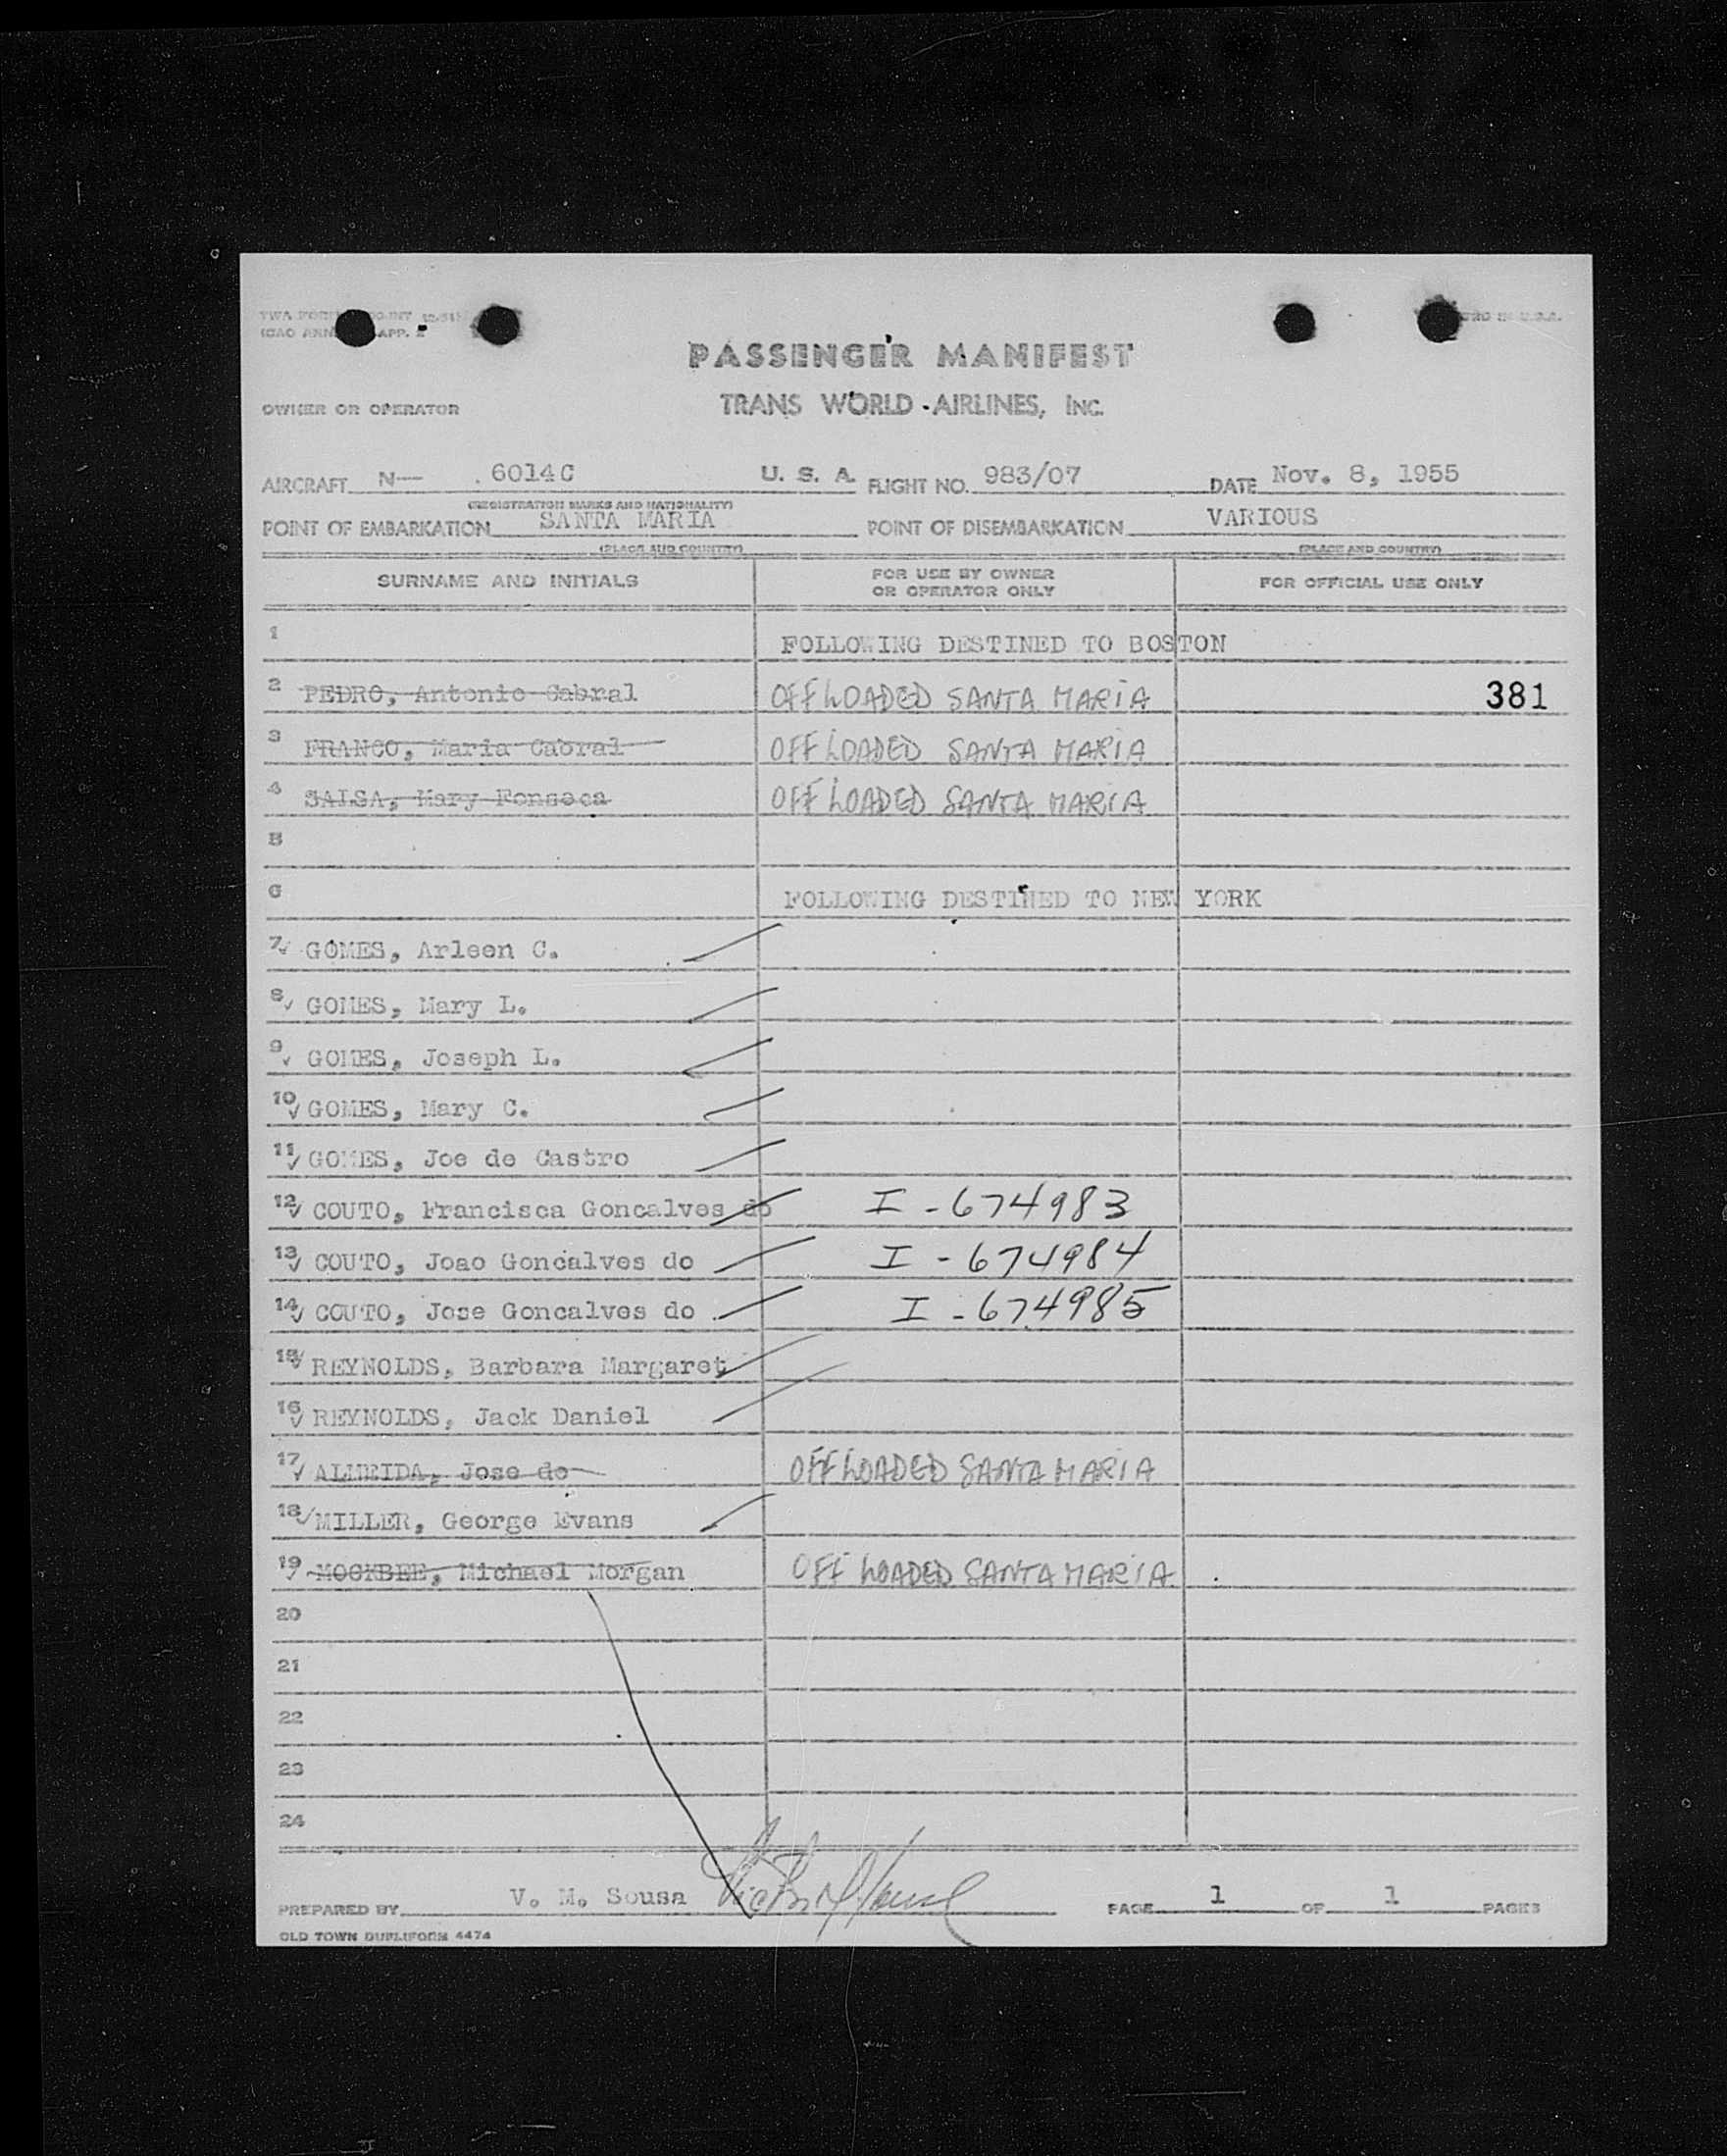 PASSENGER MANIFEST
OWNER OR OPERATOR TRANS WORLD AIRLINES, INC.
AIRCRAFT N— 6014C U. S. A. FLIGHT NO. 983/07 DATE Nov. 8, 1955
(REGISTRATION MARKS AND NATIONALITY)
POINT OF EMBARKATION SANTA MARIA POINT OF DISEMBARKATION VARIOUS
(PLACE AND COUNTRY) (PLACE AND COUNTRY)
SURNAME AND INITIALS FOR USE BY OWNER OR OPERATOR ONLY FOR OFFICIAL USE ONLY
1 FOLLOWING DESTINED TO BOSTON
2 PEDRO, Antonio Cabral OFFLOADED SANTA MARIA 381
3 FRANCO, Maria Cabral OFFLOADED SANTA MARIA
4 SALSA, Mary Fonseca OFFLOADED SANTA MARIA
5
6 FOLLOWING DESTINED TO NEW YORK
7 GOMES, Arleen C.
8 GOMES, Mary L.
9 GOMES, Joseph L.
10 GOMES, Mary C.
11 GOMES, Joe de Castro
12 COUTO, Francisca Goncalves do I - 674983
13 COUTO, Joao Goncalves do I - 674984
14 COUTO, Jose Goncalves do I - 674985
15 REYNOLDS, Barbara Margaret
16 REYNOLDS, Jack Daniel
17 ALMEIDA, Jose de OFFLOADED SANTA MARIA
18 MILLER, George Evans
19 MOCKBEE, Michael Morgan OFFLOADED SANTA MARIA
20
21
22
23
24
PREPARED BY V. M. Sousa PAGE 1 OF 1 PAGES
OLD TOWN DUPLIFORM 4474